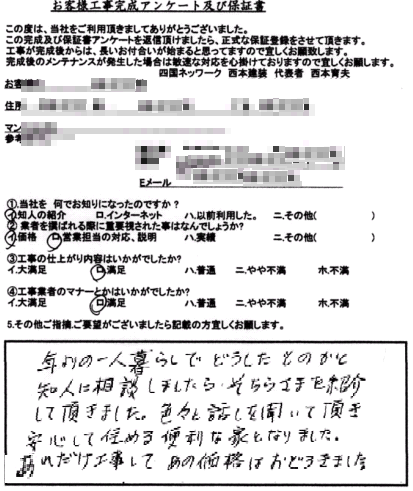 お客様工事完成アンケート及び保証書
この度は、当社をご利用頂きましてありがとうございました。
この完成及び保証書アンケートを返信頂けましたら、正式な保証登録をさせて頂きます。
工事が完成後からは、長いお付合いが始まると思ってますので宜しくお願致します。
完成後のメンテナンスが発生した場合は敏速な対応を心掛けておりますので宜しくお願します。
四国ネッワーク 西本建装 代表者 西本育夫
お客
住所
マン
参考
Eメール
①.当社を 何でお知りになったのですか?
イ.知人の紹介 ロ.インターネット ハ.以前利用した。 ニ.その他( )
② 業者を撰ばれる際に重要視された事はなんでしょうか?
イ.価格 ロ.営業担当の対応、説明 ハ.実績 ニ.その他( )
③工事の仕上がり内容はいかがでしたか?
イ.大満足 ロ.満足 ハ.普通 ニ.やや不満 ホ.不満
④工事業者のマナーとかはいかがでしたか?
イ.大満足 ロ.満足 ハ.普通 ニ.やや不満 ホ.不満
5.その他ご指摘、ご要望がございましたら記載の方宜しくお願します。
年よりの一人暮らしで どうしたものかと
知人に相談しましたら、そちらさまを紹介
して頂きました。色々と話しを聞いて頂き
安心して住める便利な家となりました。
れだけ工事して あの価格はおどろきました